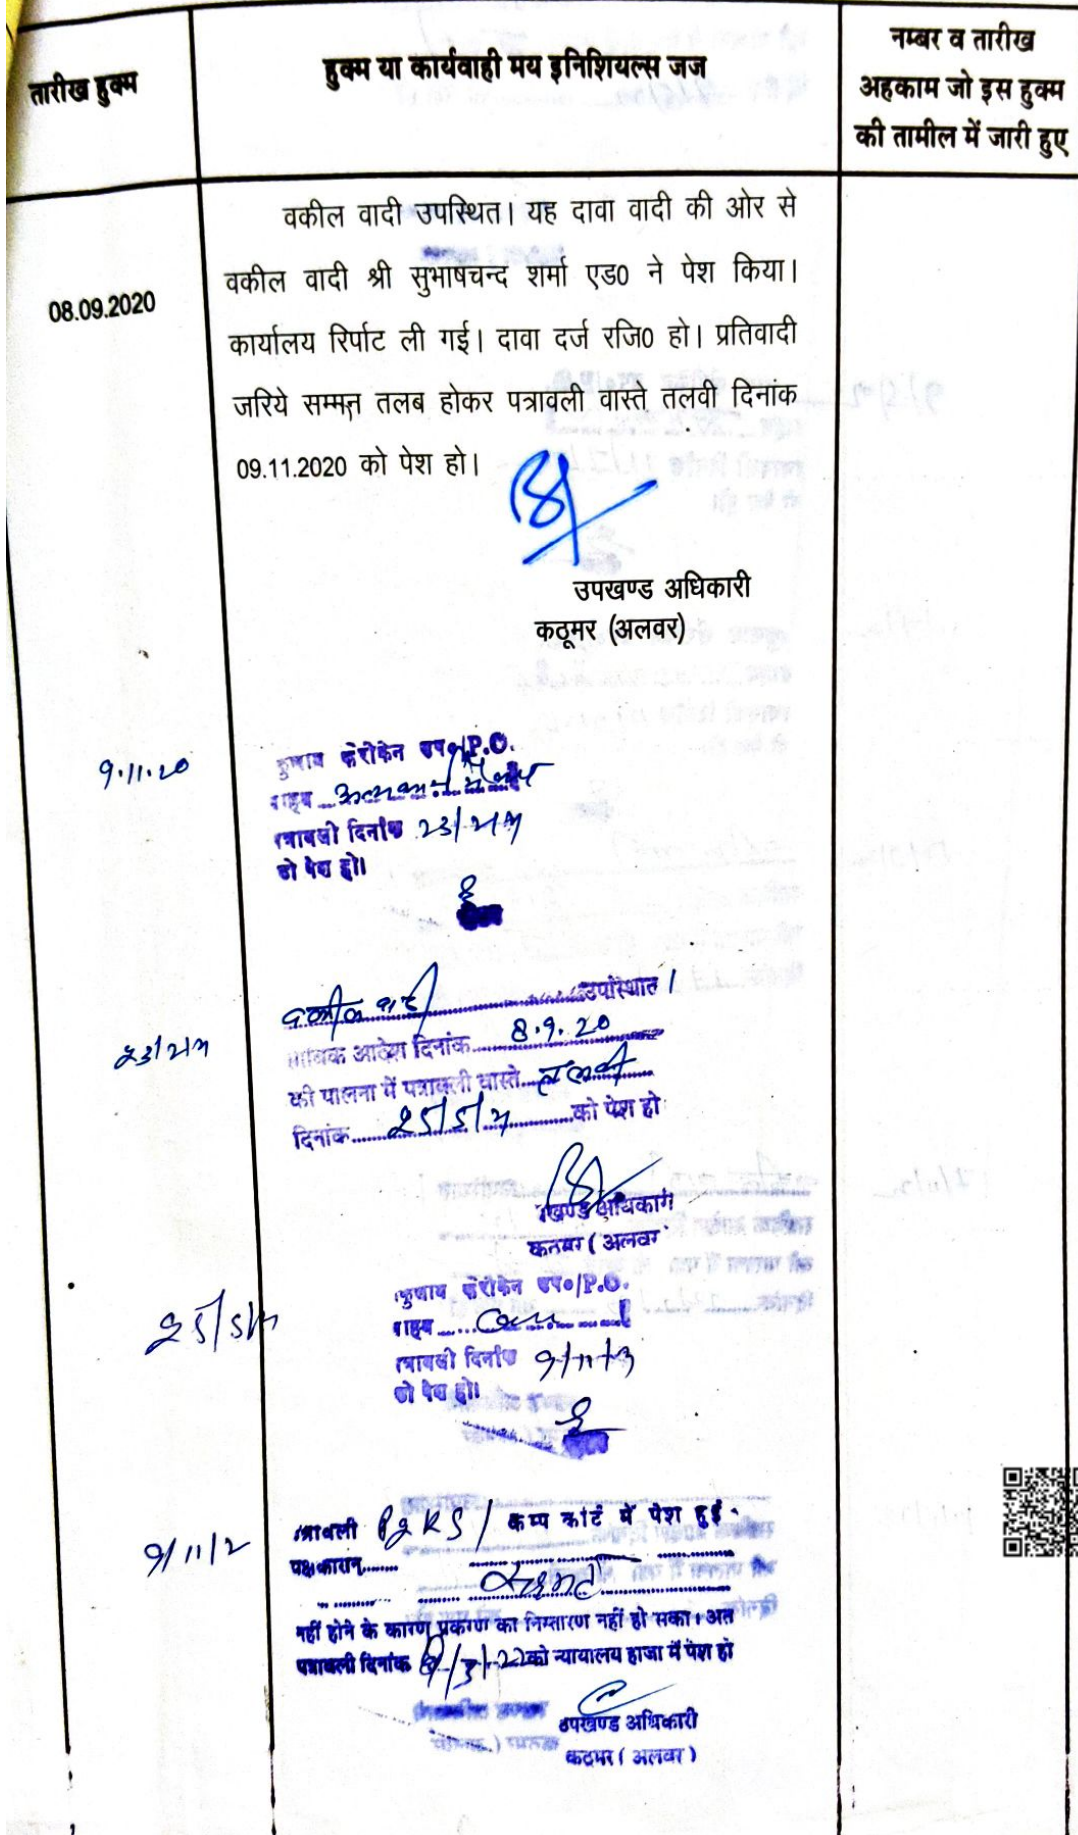 तारीख हुक्म
हुक्म या कार्यवाही मय इनिशियल्स जज
नम्बर व तारीख
अहकाम जो इस हुक्म
की तामील में जारी हुए
08.09.2020
वकील वादी उपस्थित। यह दावा वादी की ओर से
वकील वादी श्री सुभाषचन्द शर्मा एड0 ने पेश किया।
कार्यालय रिर्पाट ली गई। दावा दर्ज रजि0 हो। प्रतिवादी
जरिये सम्मन तलब होकर पत्रावली वास्ते तलवी दिनांक
09.11.2020 को पेश हो।
उपखण्ड अधिकारी
कठूमर (अलवर)
9.11.20
P.O.
पत्रावली दिनांक 23/2/21
को पेश हो।
23/2/21
वकील वादी उपस्थित।
आदेश दिनांक 8.9.20
की पालना में पत्रावली वास्ते तलवी
दिनांक 25/5/21 को पेश हो
खण्ड अधिकारी
कठूमर ( अलवर
25/5/21
P.O.
पत्रावली दिनांक
को पेश हो।
9/11/2
पत्रावली कम्प कोर्ट में पेश हुई
पक्षकारान
सहमत
नहीं होने के कारण प्रकरण का निस्तारण नहीं हो सका। अत
पत्रावली दिनांक /3/22 को न्यायालय हाजा में पेश हो
उपखण्ड अधिकारी
कठूमर ( अलवर )